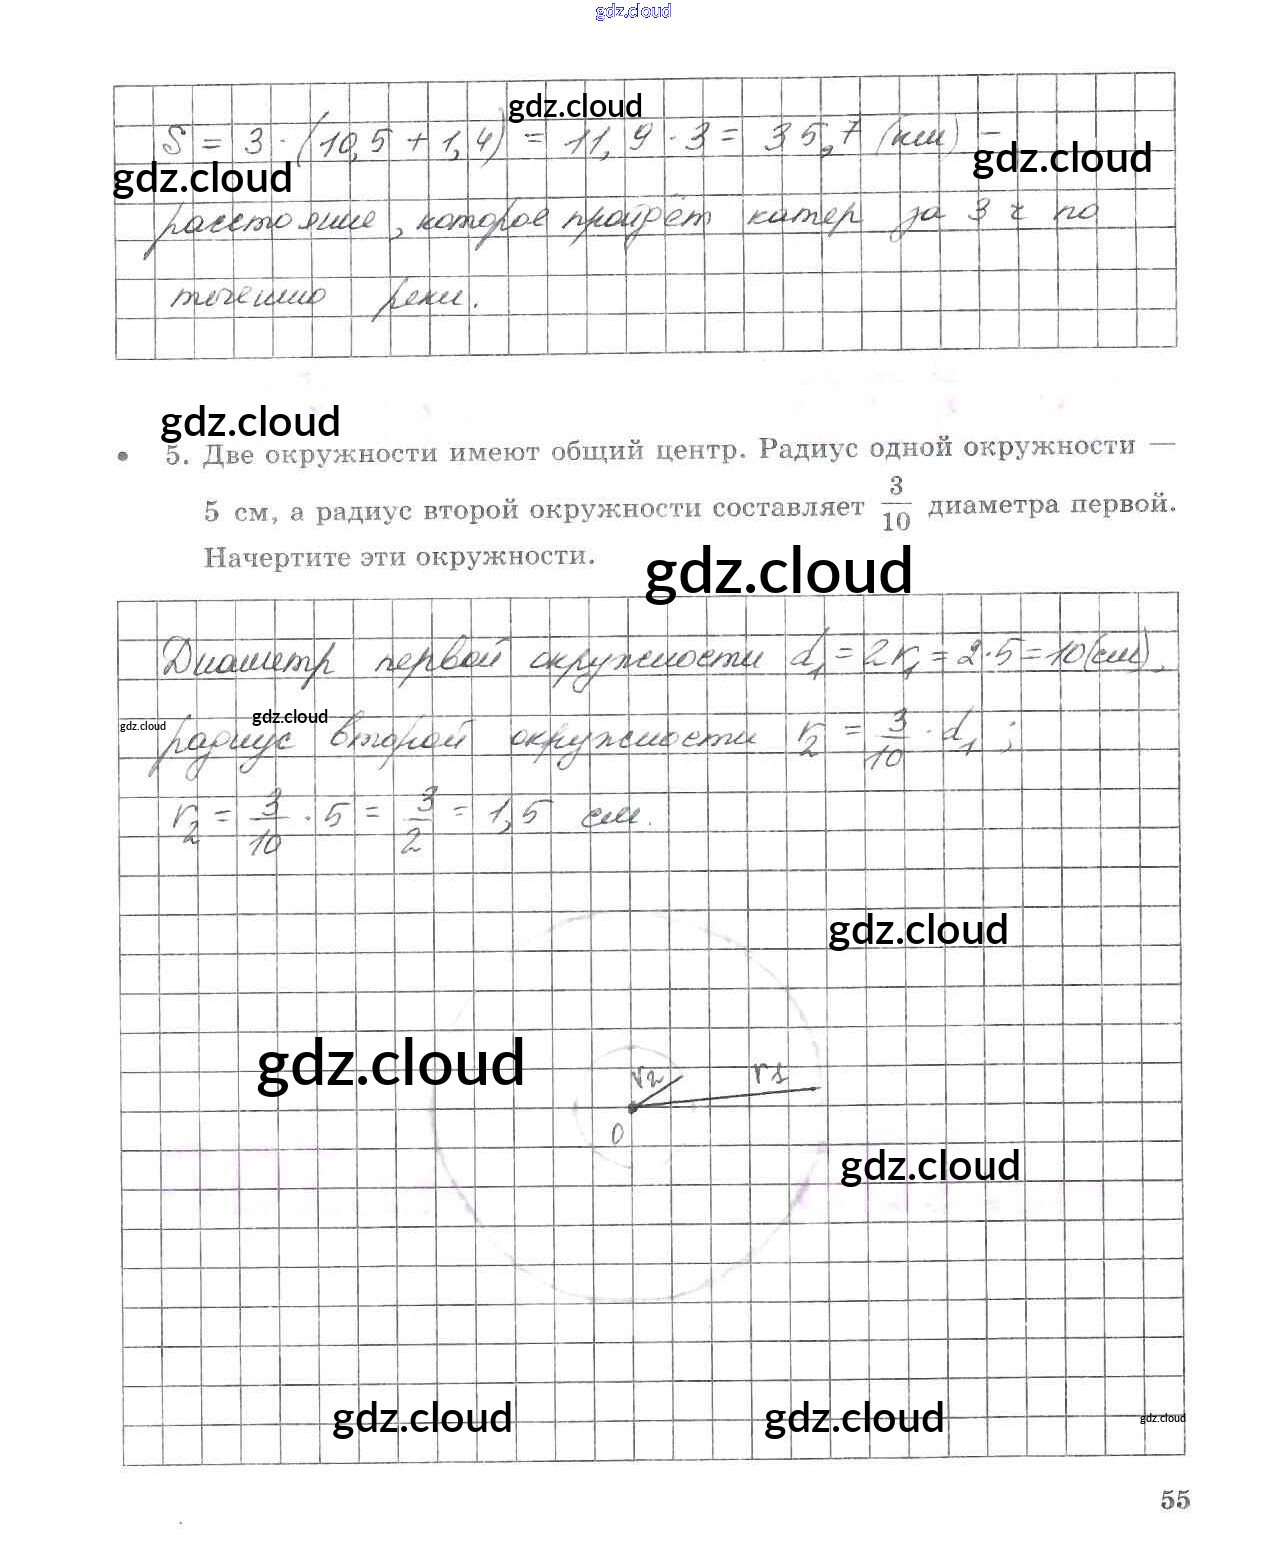 gdz.cloud
gdz.cloud
S = 3 · (10,5 + 1,4) = 11,9 · 3 = 35,7 (км) –
gdz.cloud
gdz.cloud
расстояние, которое пройдёт катер за 3 ч по
течению реки.
gdz.cloud
• 5. Две окружности имеют общий центр. Радиус одной окружности —
5 см, а радиус второй окружности составляет 3/10 диаметра первой.
Начертите эти окружности.
gdz.cloud
Диаметр первой окружности d₁ = 2r₁ = 2·5 = 10 (см),
gdz.cloud
gdz.cloud
радиус второй окружности r₂ = 3/10 · d₁ ;
r₂ = 3/10 · 5 = 3/2 = 1,5 см.
gdz.cloud
gdz.cloud
r₂
r₁
O
gdz.cloud
gdz.cloud
gdz.cloud
gdz.cloud
55